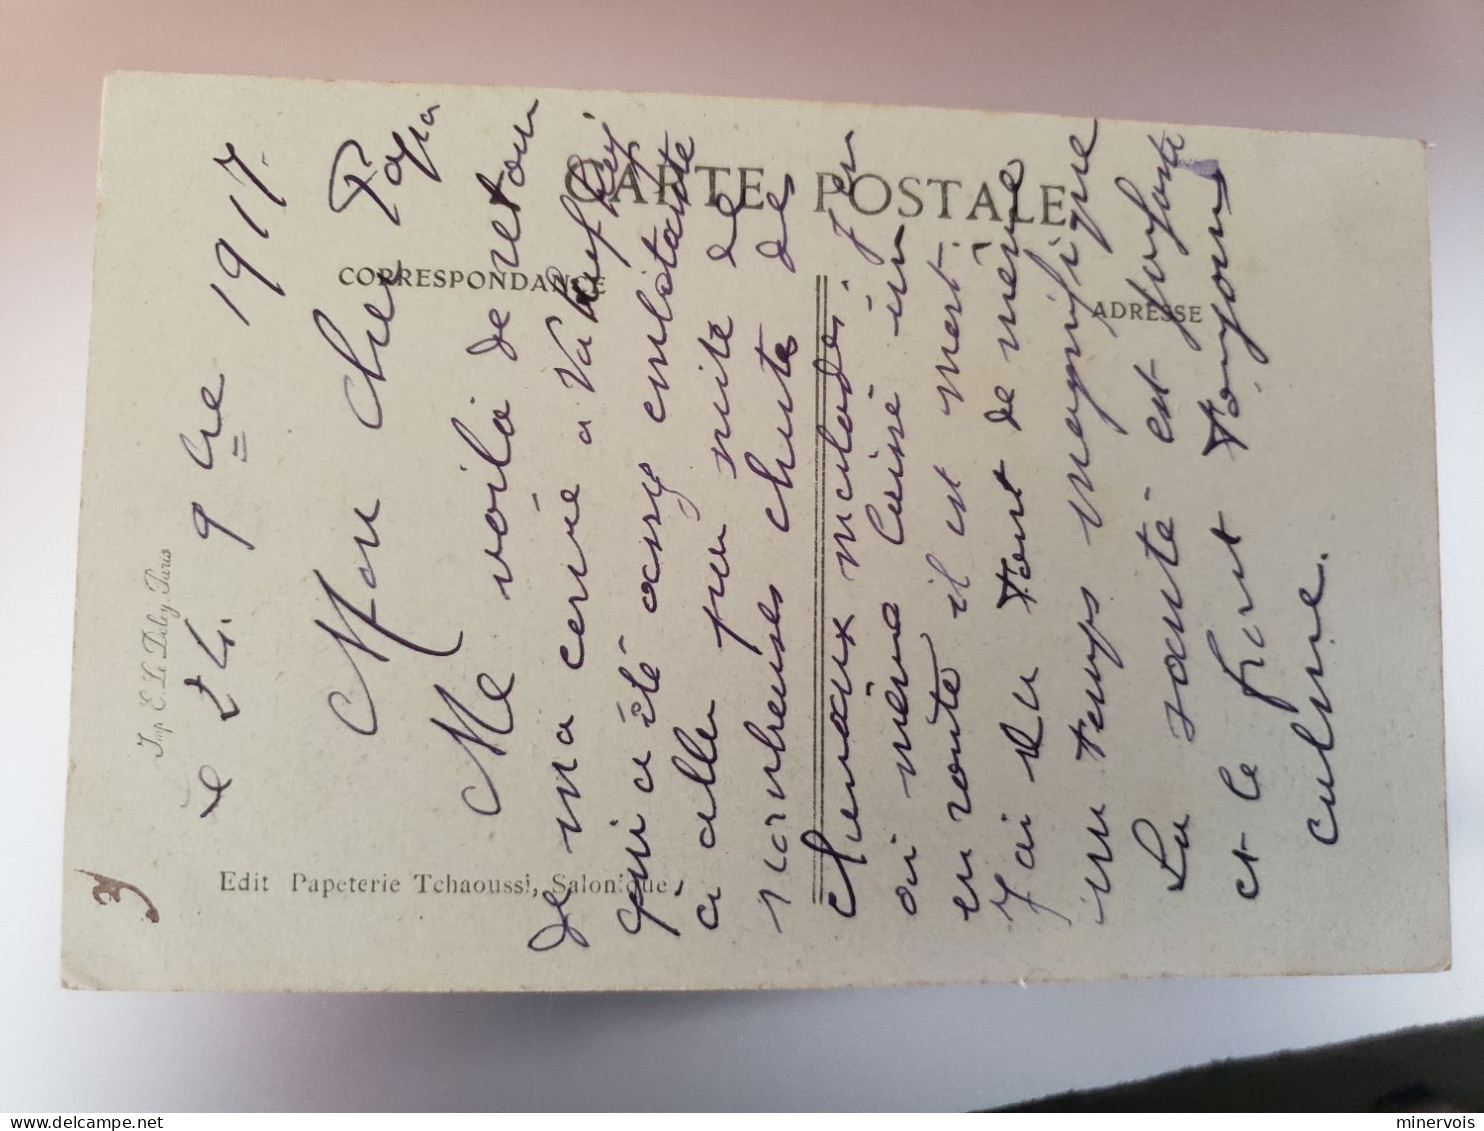 CARTE POSTALE
CORRESPONDANCE
ADRESSE
Imp. E. Le Deley, Paris
Edit Papeterie Tchaoussi, Salonique.
3
Le 24 9bre 1917.
Mon cher Papa
Me voilà de retour
de ma corvée a
qui a été assez embetante
a aller par suite de
nombreuses chutes de
chevaux malades j'en
ai même laissé un
en route il est mort.
J'ai eu tout de même
un temps magnifique
La santé est parfaite
et le front toujours
calme.
minervois